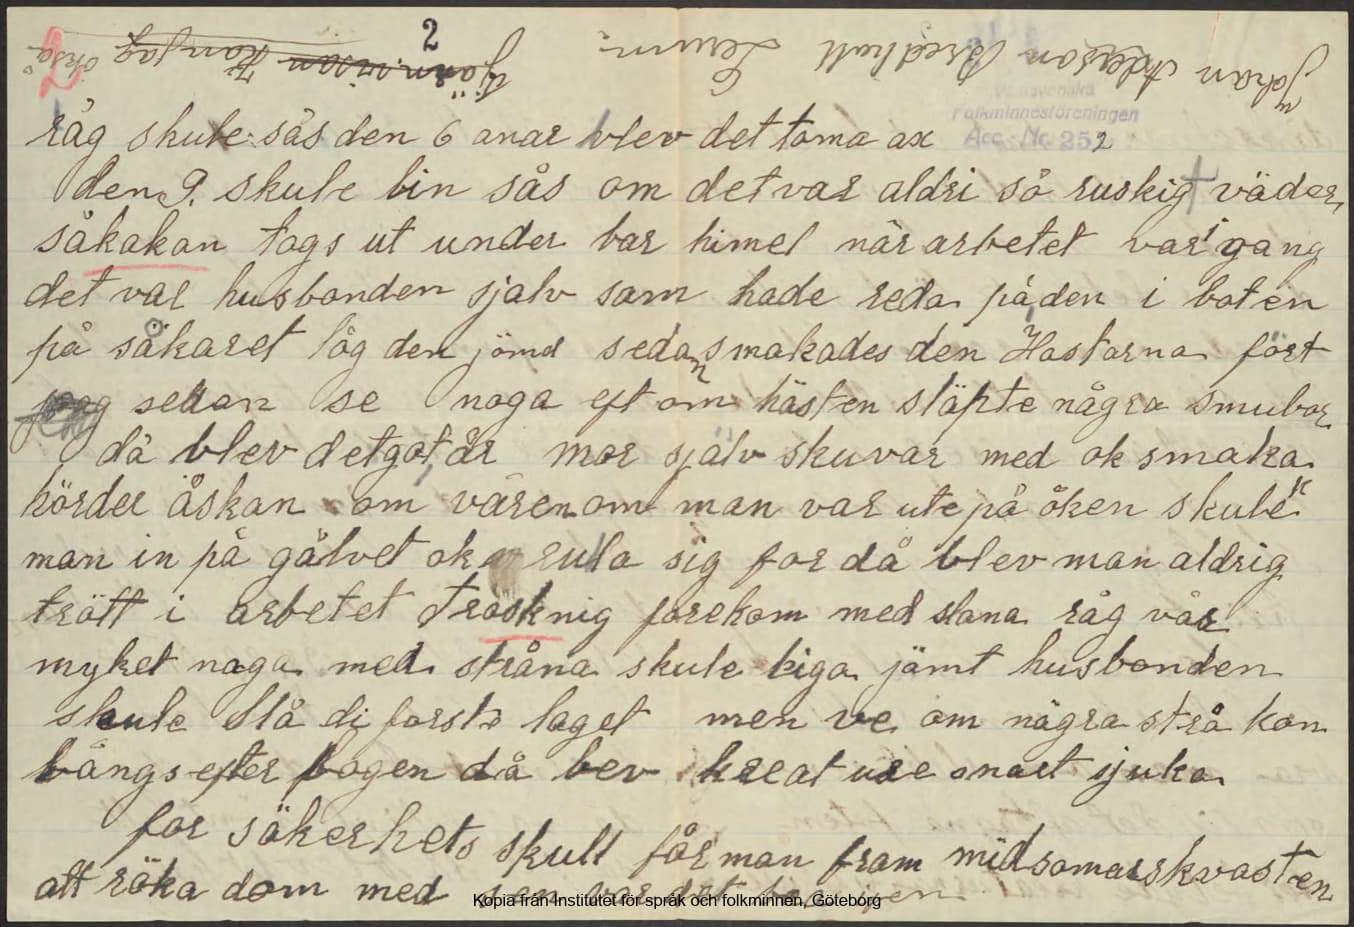 2
2
Johan Aderson Bredhult Lerum
kan jag också
Västsvenska
Folkminnesföreningen
Acc. Nr. 252
råg skule sås den 6 anar blev det toma ax
den 9. skule bin sås om det var aldri så ruskig väder,
såkakan togs ut under bar himel når arbetet var i gang
det var husbonden sjalv sam hade reda på den i boten
på såkaret låg den jömd sedan smakades den Hastarna fört
sedan se noga eft om hästen släpte några smubor
då blev det got år mor själv sku var med ok smaka
hörder åskan om våren om man var ute på öken skule
man in på gålvet ok rula sig for då blev man aldrig
trött i arbetet Trosknig forekom med slana råg vår
myket naga med stråna skule liga jämt husbonden
skule slå di forste laget men ve om några strå kon
bångs efter bogen då bev kreat ure snart sjuka
for säkerhets skull får man fram midsomarskvasten
att röka dom med sen var det
Kopia från Institutet för språk och folkminnen, Göteborg